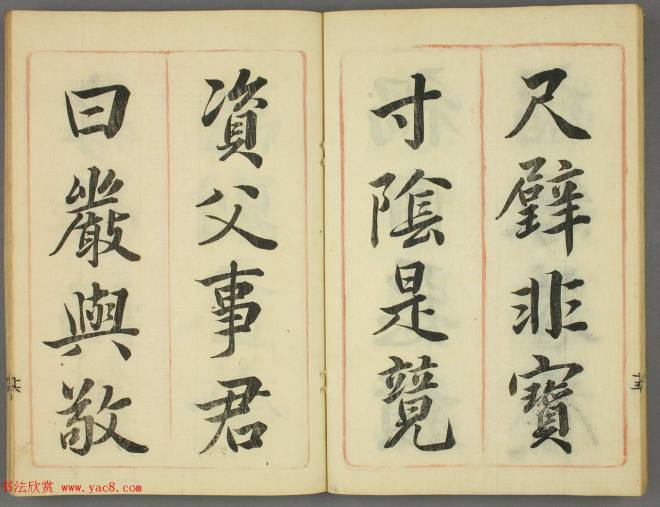 尺璧非寶
寸陰是競
資父事君
曰嚴與敬
十五
十六
书法欣赏 www.yac8.com